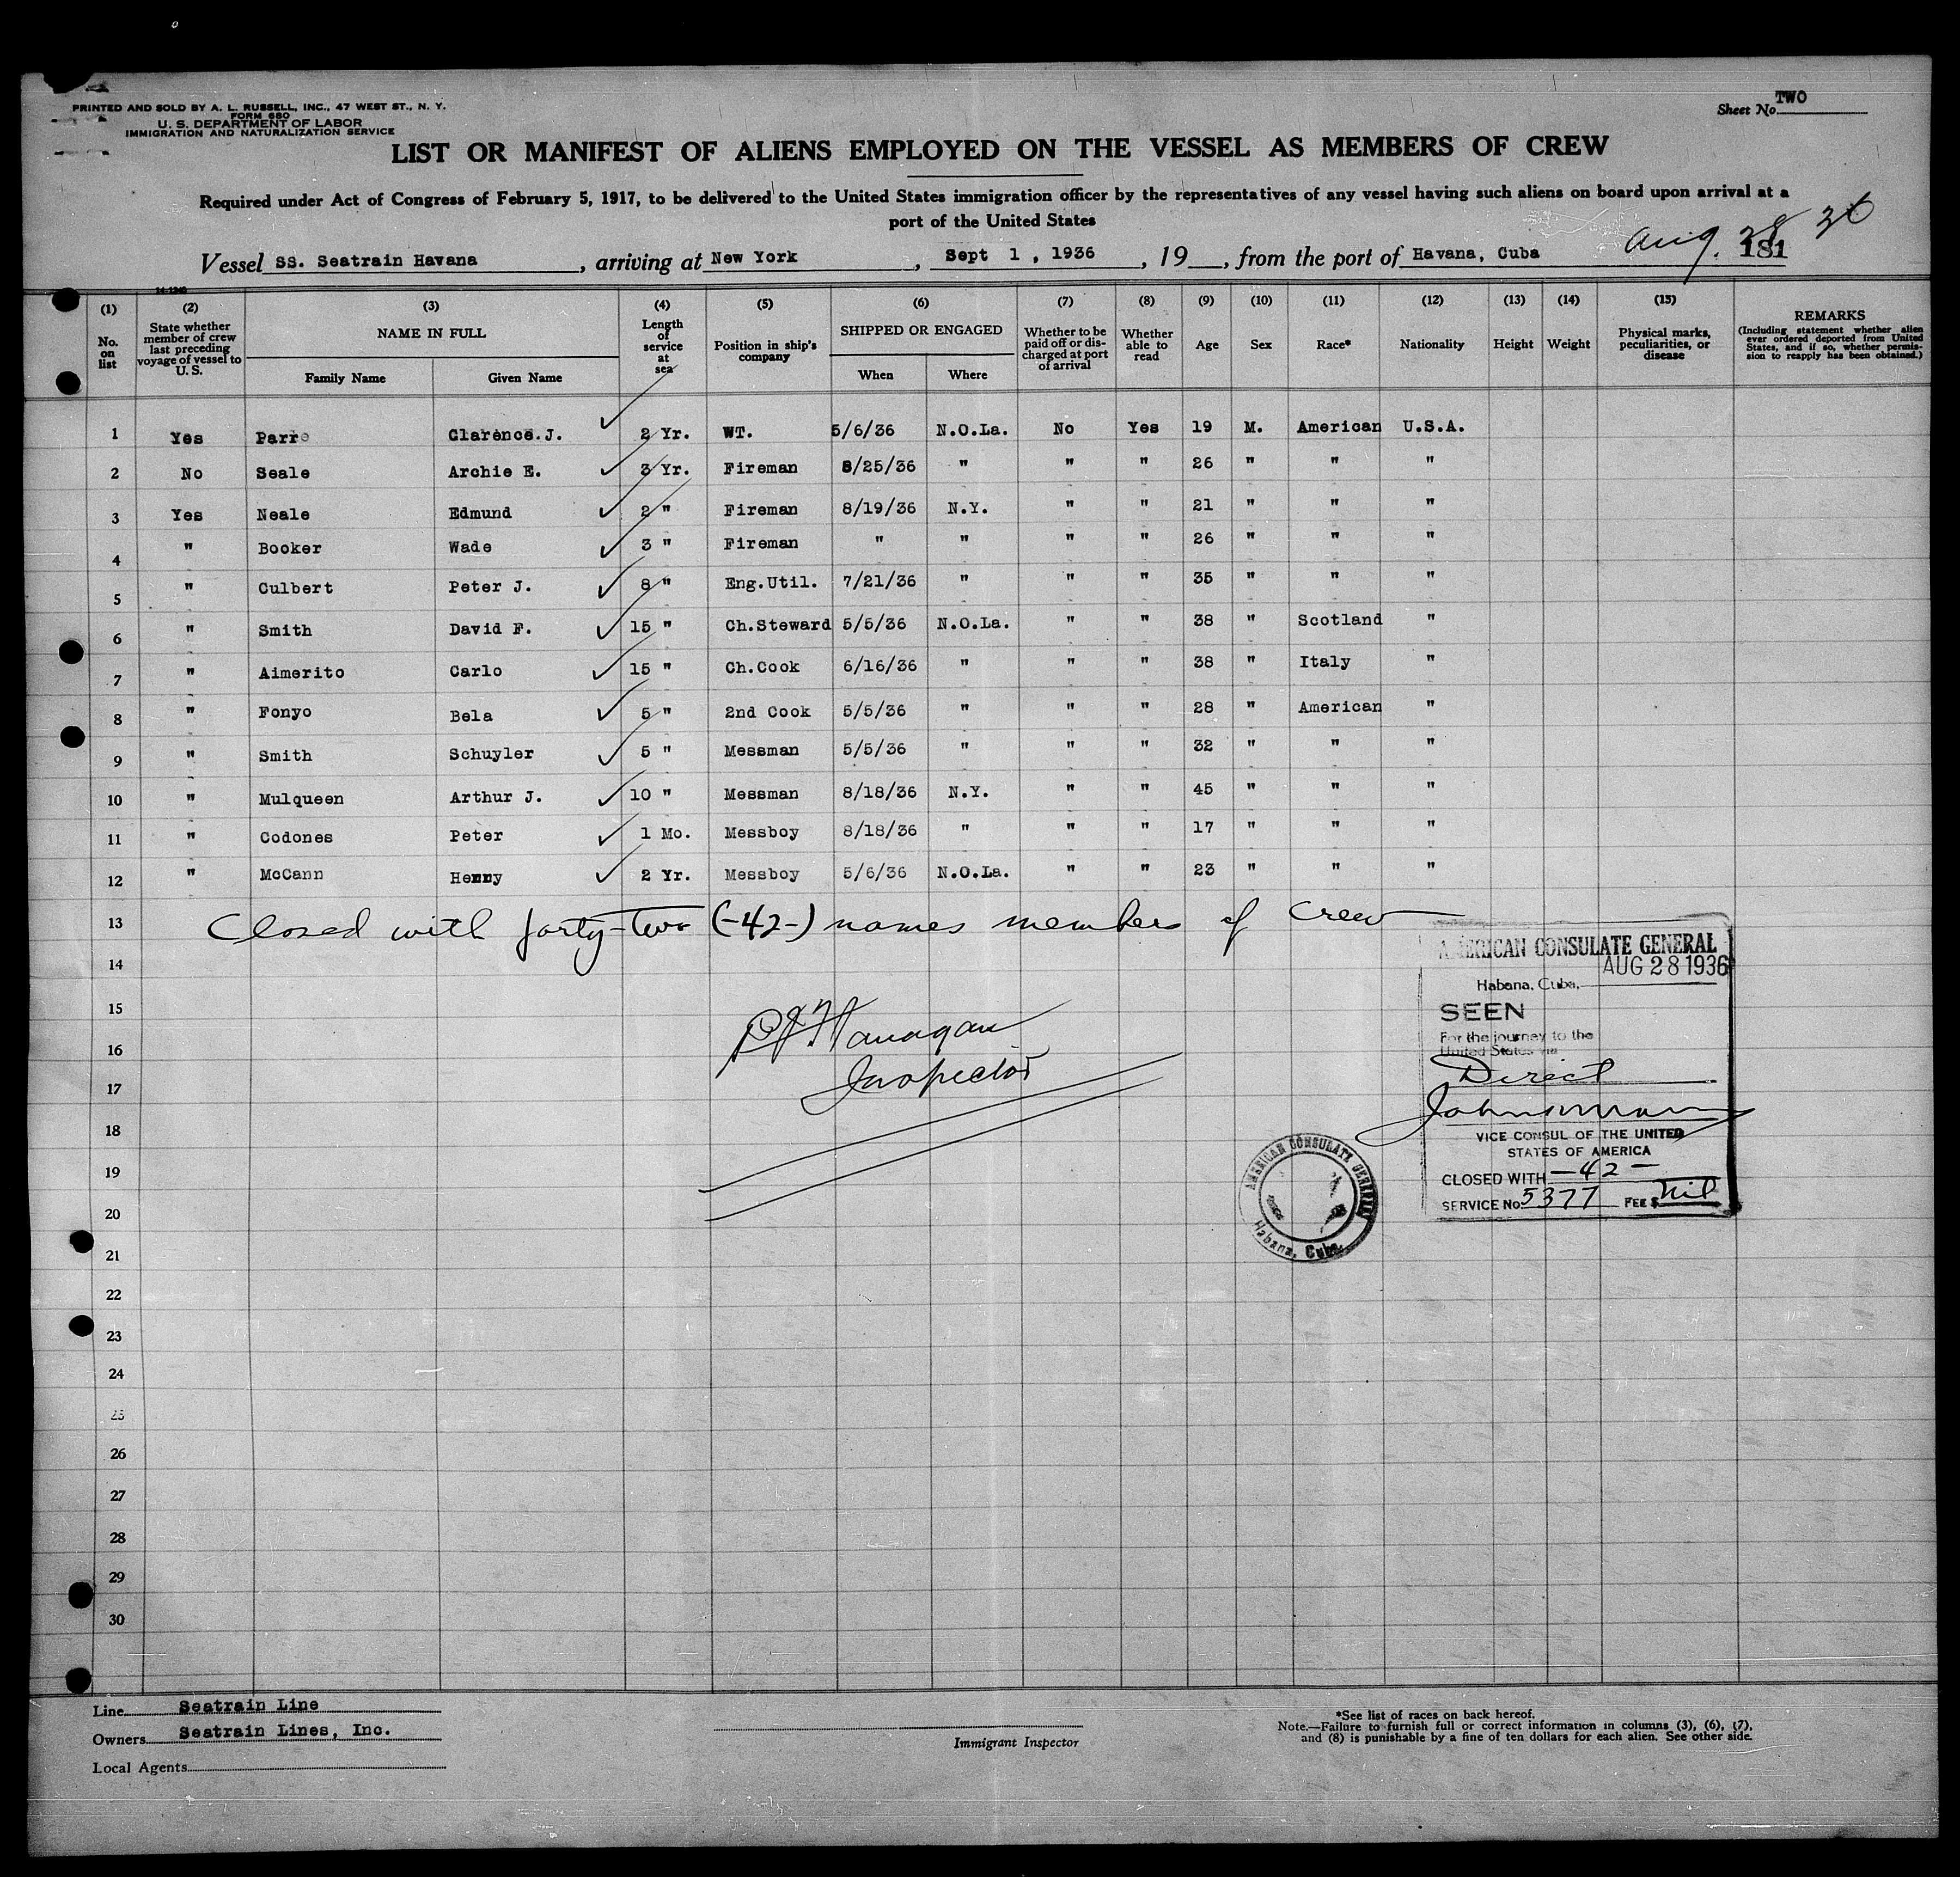 PRINTED AND SOLD BY A. L. RUSSELL, INC., 47 WEST ST., N. Y.
FORM 680
U. S. DEPARTMENT OF LABOR
IMMIGRATION AND NATURALIZATION SERVICE
Sheet No. TWO
LIST OR MANIFEST OF ALIENS EMPLOYED ON THE VESSEL AS MEMBERS OF CREW
Required under Act of Congress of February 5, 1917, to be delivered to the United States immigration officer by the representatives of any vessel having such aliens on board upon arrival at a
port of the United States
Aug. 28 36
Vessel SS. Seatrain Havana, arriving at New York, Sept 1, 1936, 19__, from the port of Havana, Cuba 181
(1) No. on list
(2) State whether member of crew last preceding voyage of vessel to U. S.
(3) NAME IN FULL Family Name Given Name
(4) Length of service at sea
(5) Position in ship's company
(6) SHIPPED OR ENGAGED When Where
(7) Whether to be paid off or discharged at port of arrival
(8) Whether able to read
(9) Age
(10) Sex
(11) Race*
(12) Nationality
(13) Height
(14) Weight
(15) Physical marks, peculiarities, or disease
REMARKS (Including statement whether alien ever ordered deported from United States, and if so, whether permission to reapply has been obtained.)
1 Yes Parre Clarence.J. 2 Yr. WT. 5/6/36 N.O.La. No Yes 19 M. American U.S.A.
2 No Seale Archie E. 3 Yr. Fireman 8/25/36 " " " 26 " " "
3 Yes Neale Edmund 2 " Fireman 8/19/36 N.Y. " " 21 " " "
4 " Booker Wade 3 " Fireman " " " " 26 " " "
5 " Culbert Peter J. 8 " Eng.Util. 7/21/36 " " " 35 " " "
6 " Smith David F. 15 " Ch.Steward 5/5/36 N.O.La. " " 38 " Scotland "
7 " Aimerito Carlo 15 " Ch.Cook 6/16/36 " " " 38 " Italy "
8 " Fonyo Bela 5 " 2nd Cook 5/5/36 " " " 28 " American "
9 " Smith Schuyler 5 " Messman 5/5/36 " " " 32 " " "
10 " Mulqueen Arthur J. 10 " Messman 8/18/36 N.Y. " " 45 " " "
11 " Codones Peter 1 Mo. Messboy 8/18/36 " " " 17 " " "
12 " McCann Henny 2 Yr. Messboy 5/6/36 N.O.La. " " 23 " " "
13 Closed with forty-two (-42-) names members of crew
14
15
16
17
18
19
20
21
22
23
24
25
26
27
28
29
30
Flanagan
Inspector
AMERICAN CONSULATE GENERAL
AUG 28 1936
Habana, Cuba,
SEEN
For the journey to the
United States via
Direct
VICE CONSUL OF THE UNITED
STATES OF AMERICA
CLOSED WITH -42-
SERVICE No. 5377 FEE $ Nil
AMERICAN CONSULATE GENERAL
Habana, Cuba.
Line Seatrain Line
Owners Seatrain Lines, Inc.
Local Agents
Immigrant Inspector
*See list of races on back hereof.
Note.—Failure to furnish full or correct information in columns (3), (6), (7),
and (8) is punishable by a fine of ten dollars for each alien. See other side.